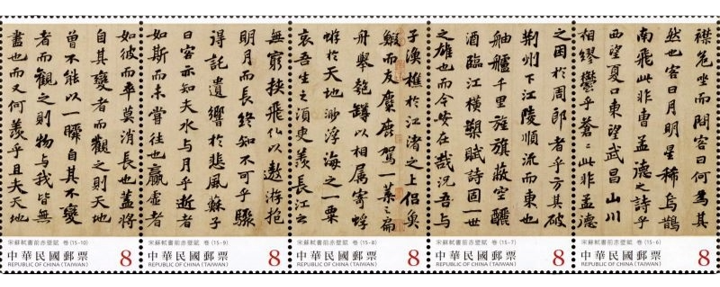 襟危坐而問客曰何為其
然也客曰月明星稀烏鵲
南飛此非曹孟德之詩乎
西望夏口東望武昌山川
相繆鬱乎蒼蒼此非孟德
宋蘇軾書前赤壁賦 卷 (15-6)
中華民國郵票 8
REPUBLIC OF CHINA (TAIWAN)
之困於周郎者乎方其破
荊州下江陵順流而東也
舳艫千里旌旗蔽空釃
酒臨江橫槊賦詩固一世
之雄也而今安在哉況吾與
宋蘇軾書前赤壁賦 卷 (15-7)
中華民國郵票 8
REPUBLIC OF CHINA (TAIWAN)
子漁樵於江渚之上侶魚
鰕而友麋鹿駕一葉之扁
舟舉匏罇以相屬寄蜉
蝣於天地渺浮海之一粟
哀吾生之須臾羨長江之
宋蘇軾書前赤壁賦 卷 (15-8)
中華民國郵票 8
REPUBLIC OF CHINA (TAIWAN)
無窮挾飛仙以遨遊抱
明月而長終知不可乎驟
得託遺響於悲風蘇子
曰客亦知夫水與月乎逝者
如斯而未嘗往也贏虛者
宋蘇軾書前赤壁賦 卷 (15-9)
中華民國郵票 8
REPUBLIC OF CHINA (TAIWAN)
如彼而卒莫消長也蓋將
自其變者而觀之則天地
曾不能以一瞬自其不變
者而觀之則物與我皆無
盡也而又何羨乎且夫天地
宋蘇軾書前赤壁賦 卷 (15-10)
中華民國郵票 8
REPUBLIC OF CHINA (TAIWAN)